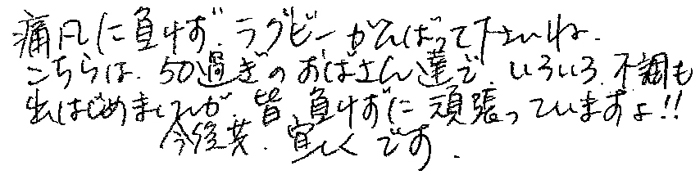 痛風に負けず ラグビーがんばって下さいね.
こちらは. 50過ぎのおばさん達で いろいろ 不調も
出はじめましたが 皆 負けずに頑張っていますよ!!
今後共. 宜しくです.